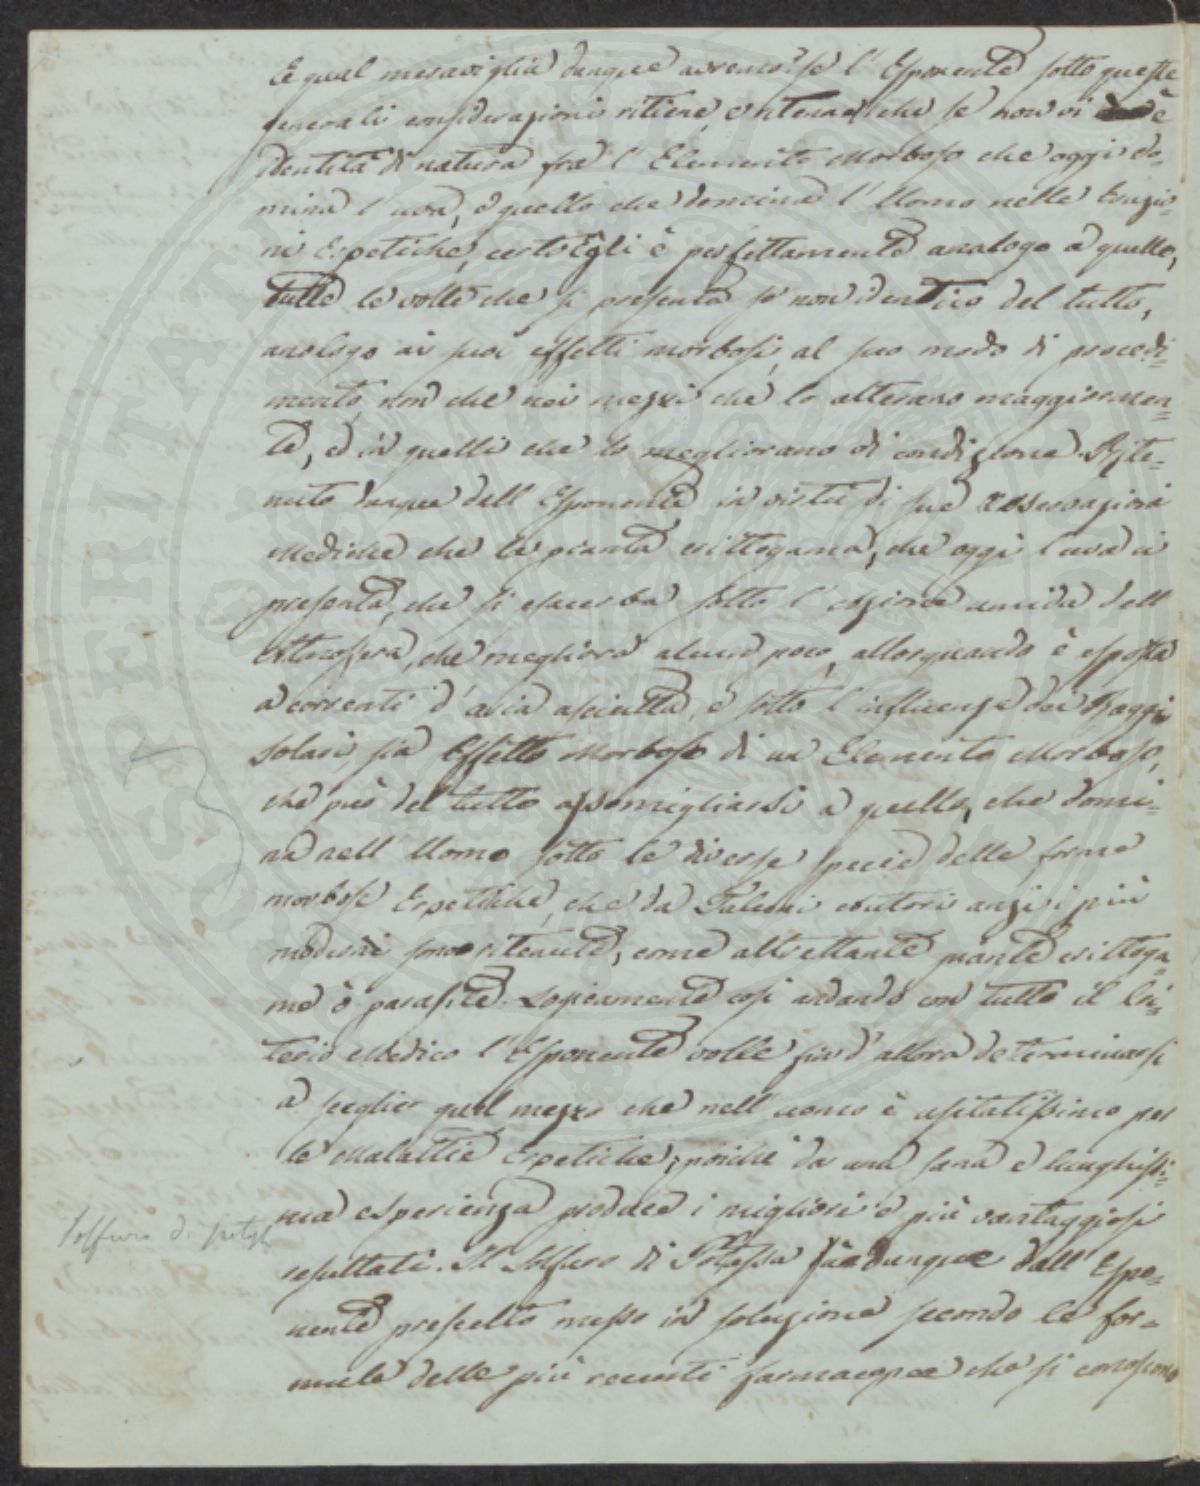 E qual meraviglia dunque avremo? se l'Esponente sotto queste
generali considerazioni ritiene, e ritenne che se non vi è
identità di natura fra l'Elemento Morboso che oggi do=
mina l'uva, e quello che domina l'Uomo nelle Eruzio=
ni Erpetiche, certo Egli è perfettamente analogo a quello,
tutte le volte che si presenta se non identico del tutto,
analogo ai suoi effetti morbosi, al suo modo di procedi=
mento, non che nei mezzi che lo alterano maggiormen=
te, ed in quelli che lo megliorano di condizione. Rite=
nuto dunque dall'Esponente in virtù di sue osservazioni
Mediche che la pianta crittogama, che oggi l'uva ci
presenta, che si esacerba sotto l'azione umida dell'
Atmosfera, che megliora alcun poco, allorquando è esposta
a correnti d'aria asciutta, e sotto l'influenza dei Raggi
solari, sia Effetto Morboso di un Elemento Morboso,
che può del tutto assomigliarsi a quello, che domi=
na nell'Uomo sotto le diverse specie delle forme
morbose Erpetiche, che da Taluni Autori anzi i più
moderni sono ritenute, come altrettante piante crittoga=
me o parasite. Logicamente così andando con tutto il Cri=
terio Medico l'Esponente volle fin d'allora determinarsi
a sceglier quel mezzo che nell'uomo è usitatissimo per
le Malattie Erpetiche; poichè da una sana e lunghissi=
ma esperienza produce i migliori e più vantaggiosi
resultati. Il Solfuro di Potassa fù dunque dall'Espo=
nente prescelto messo in soluzione secondo le for=
mule delle più recenti farmacopee che si conoscono
Solfuro di